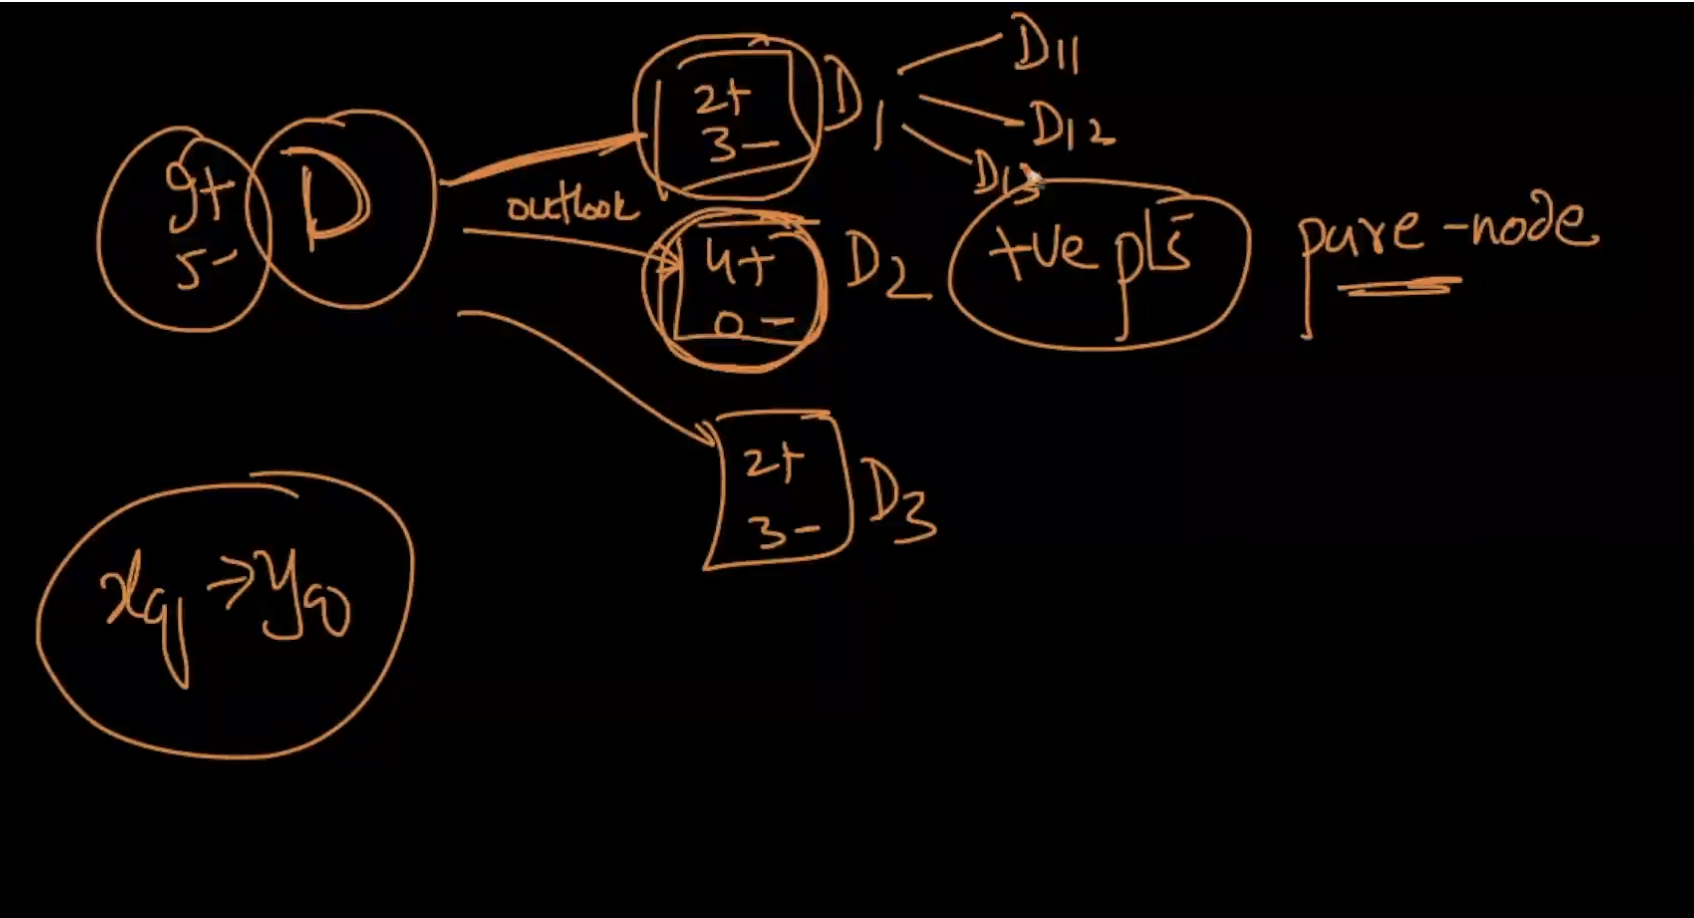 9+
5-
D
outlook
2+
3-
D1
D11
D12
D13
4+
0-
D2
+ve pts
pure-node
2+
3-
D3
xq → yq